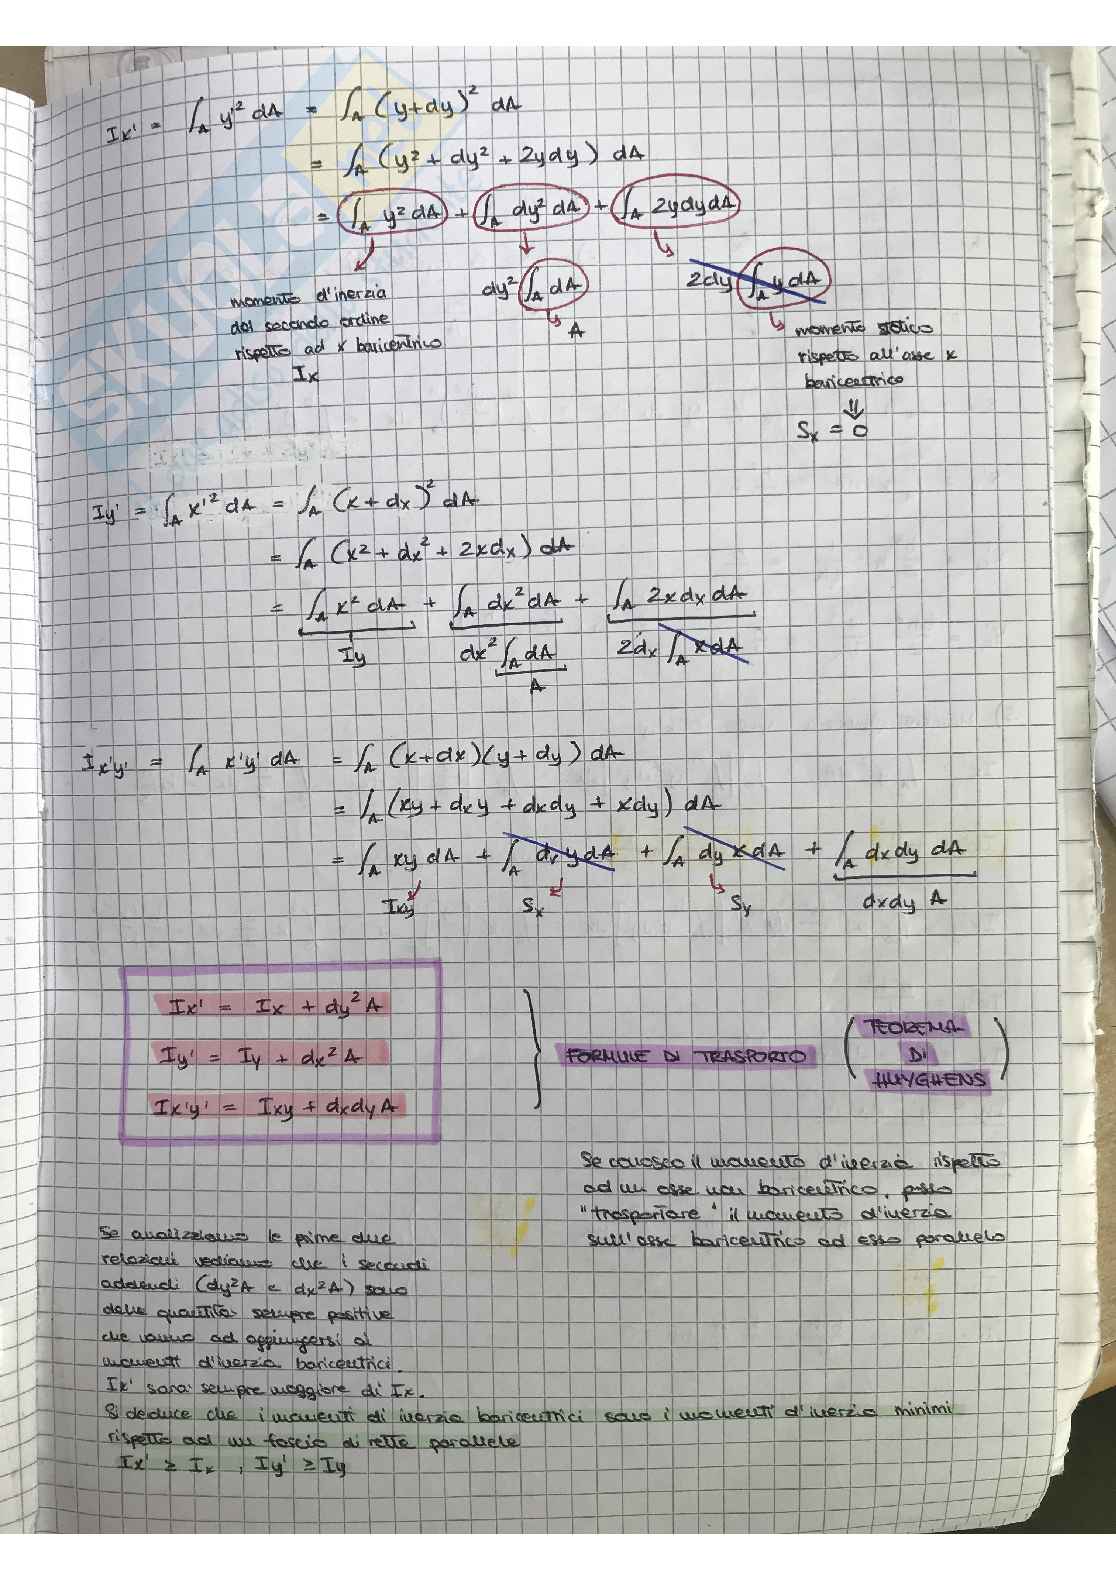 Ix' = ∫A y'² dA = ∫A (y+dy)² dA
= ∫A (y² + dy² + 2ydy) dA
= ∫A y² dA + ∫A dy² dA + ∫A 2ydydA
momento d'inerzia
del secondo ordine
rispetto ad x baricentrico
Ix
dy² ∫A dA
A
2dy ∫A y dA
momento statico
rispetto all'asse x
baricentrico
Sx = 0
Iy' = ∫A x'² dA = ∫A (x + dx)² dA
= ∫A (x² + dx² + 2xdx) dA
= ∫A x² dA + ∫A dx² dA + ∫A 2xdx dA
Iy dx² ∫A dA 2dx ∫A x dA
A
Ix'y' = ∫A x'y' dA = ∫A (x+dx)(y+dy) dA
= ∫A (xy + dxy + dxdy + xdy) dA
= ∫A xy dA + ∫A dx y dA + ∫A dy x dA + ∫A dxdy dA
Ixy Sx Sy dxdy A
Ix' = Ix + dy² A
Iy' = Iy + dx² A
Ix'y' = Ixy + dxdyA
FORMULE DI TRASPORTO
(TEOREMA
DI
HUYGHENS)
Se conosco il momento d'inerzia rispetto
ad un asse non baricentrico, posso
"trasportare" il momento d'inerzia
sull'asse baricentrico ad esso parallelo
Se analizziamo le prime due
relazioni vediamo che i secondi
addendi (dy²A e dx²A) sono
delle quantità sempre positive
che vanno ad aggiungersi ai
momenti d'inerzia baricentrici.
Ix' sarà sempre maggiore di Ix.
Si deduce che i momenti di inerzia baricentrici sono i momenti d'inerzia minimi
rispetto ad un fascio di rette parallele
Ix' ≥ Ix , Iy' ≥ Iy